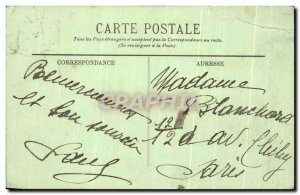 CARTE POSTALE
Tous les Pays étrangers n'acceptent pas la Correspondance au recto.
(Se renseigner à la Poste).
CORRESPONDANCE
ADRESSE
et bon souvenir
Madame
Blanchard
12 av. Clichy
Paris